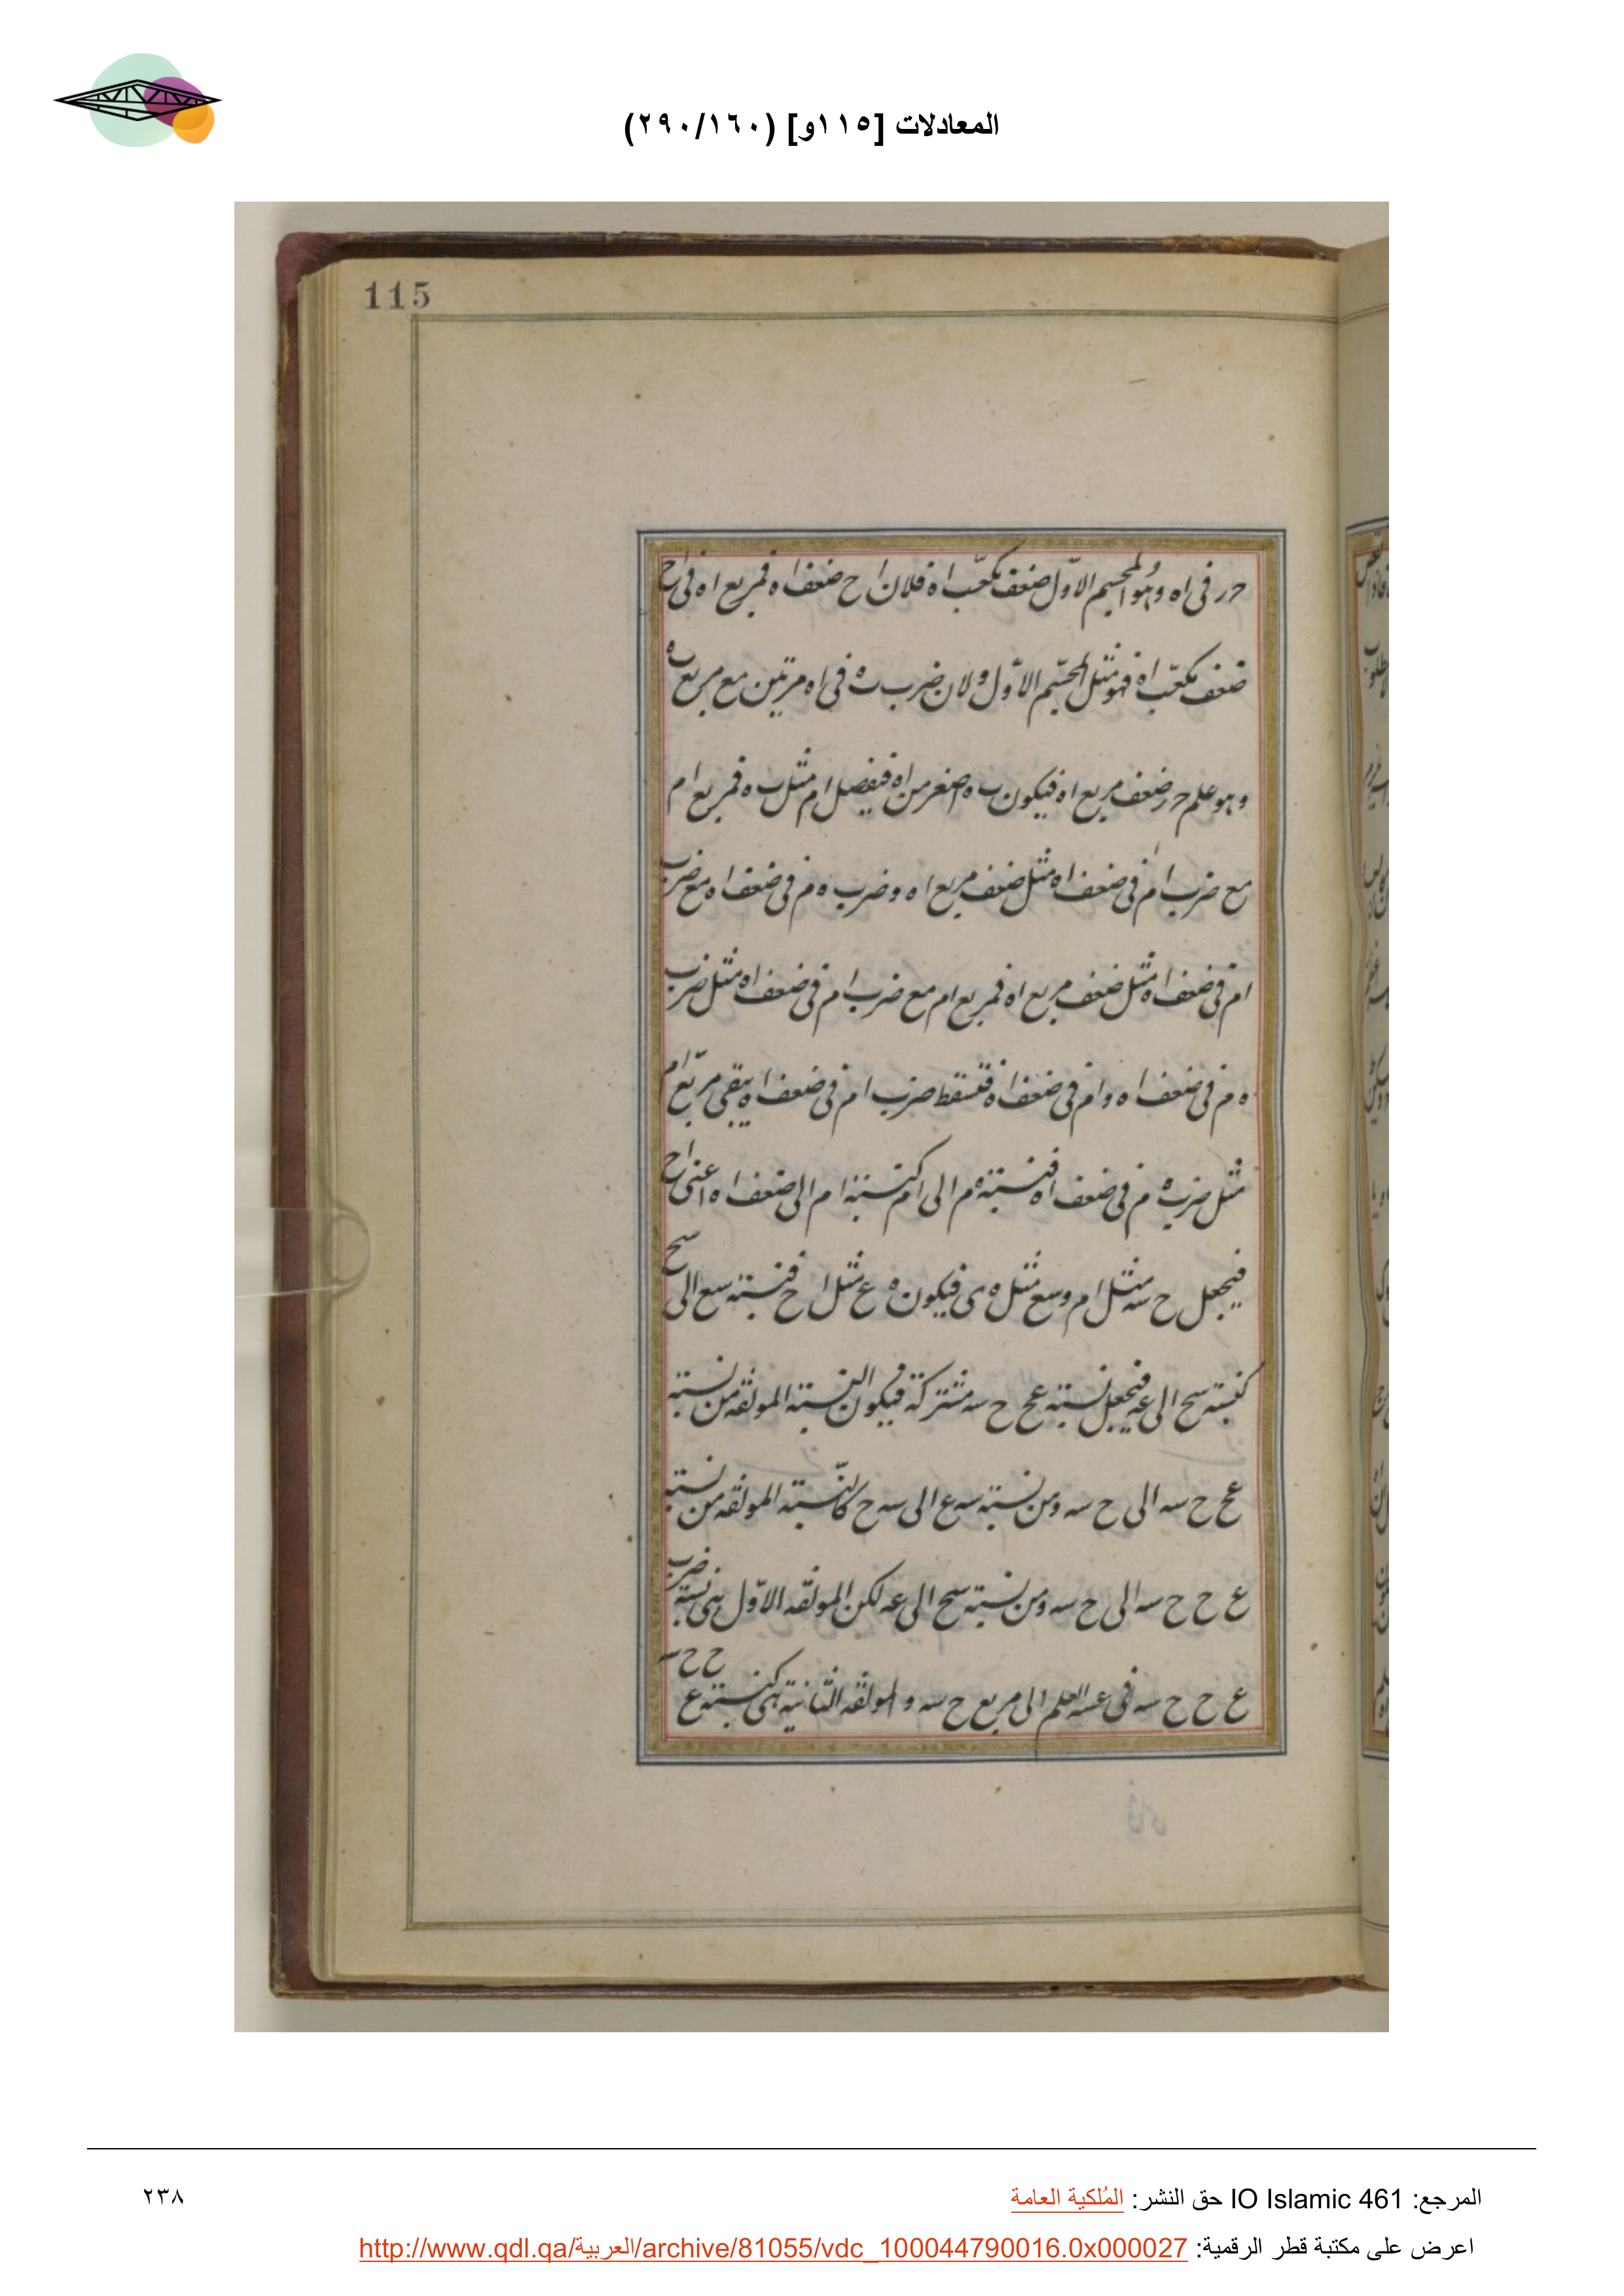 المعادلات [١١٥و] (٢٩٠/١٦٠)
115
حر فى اه وهو المجسم الاول ضعف مكعب اه فلان اح ضعف اه فمربع اه فى اح
ضعف مكعب اه فهو مثل المجسم الاول ولان ضرب ب ه فى اه مرتين مع مربع ب ه
وهو علم حر ضعف مربع اه فيكون ب ه اصغر من اه فيفصل ام مثل ب ه فمربع ام
مع ضرب ام فى ضعف اه مثل ضعف مربع اه وضرب ه م فى ضعف اه مع ضرب
ام فى ضعف اه مثل ضعف مربع اه فمربع ام مع ضرب ام فى ضعف اه مثل ضرب
ه م فى ضعف اه وام فى ضعف اه فتسقط ضرب ام فى ضعف اه يبقى مربع ام
مثل ضرب ه م فى ضعف اه فنسبة ه م الى ام كنسبة ام الى ضعف اه اعنى اح
فيجعل ح سه مثل ام وسع مثل ه م فيكون ع مثل اح فنسبة سع الى سح
كنسبة سح الى عه فيجعل نسبة عح ح سه مشتركة فيكون النسبة المولفه من نسبة
عح ح سه الى ح سه ومن نسبة سه ع الى سه ح كالنسبة المولفه من نسبة
ع ح ح سه الى ح سه ومن نسبة سح الى عه لكن المولفه الاول هى نسبة ضرب
ع ح ح سه فى عسه العلم الى مربع ح سه والمولفه الثانية هى كنسبة ع ح ح سه
المرجع: IO Islamic 461 حق النشر: المُلكية العامة
٢٣٨
اعرض على مكتبة قطر الرقمية: http://www.qdl.qa/العربية/archive/81055/vdc_100044790016.0x000027